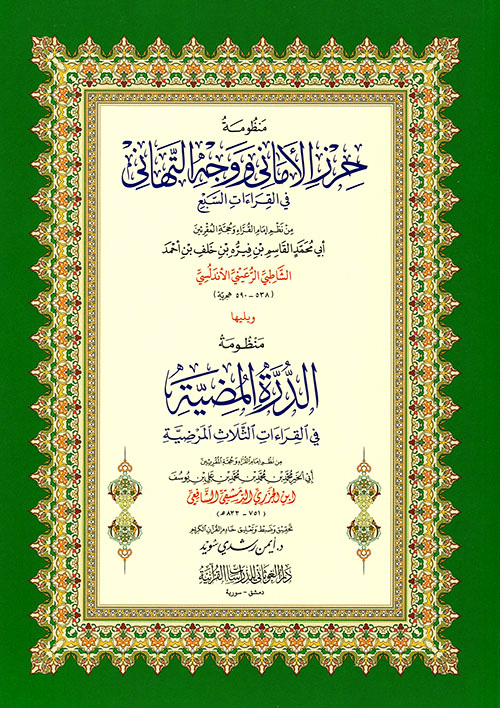 مَنْظُومَةُ
حِرْزِ الأَمَانِي وَوَجْهِ التَّهَانِي
فِي القِرَاءَاتِ السَّبْعِ
مِنْ نَظْمِ إِمَامِ القُرَّاءِ وَحُجَّةِ المُقْرِئِينَ
أَبِي مُحَمَّدٍ القَاسِمِ بْنِ فِيرُّهْ بْنِ خَلَفِ بْنِ أَحْمَدَ
الشَّاطِبِيِّ الرُّعَيْنِيِّ الأَنْدَلُسِيِّ
(٥٣٨ - ٥٩٠ هجريّة)
ويليها
مَنْظُومَةُ
الدُّرَّةِ المُضِيَّةِ
فِي القِرَاءَاتِ الثَّلَاثِ المَرْضِيَّةِ
مِنْ نَظْمِ إِمَامِ القُرَّاءِ وَحُجَّةِ المُقْرِئِينَ
أَبِي الخَيْرِ مُحَمَّدِ بْنِ مُحَمَّدِ بْنِ مُحَمَّدِ بْنِ عَلِيِّ بْنِ يُوسُفَ
ابْنِ الجَزَرِيِّ الدِّمَشْقِيِّ الشَّافِعِيِّ
(٧٥١ - ٨٣٣هـ)
تحقيق وضبط وتعليق خادم القرآن الكريم
د. أيمن رشدي سويد
دار الغوثاني للدراسات القرآنية
دمشق - سورية